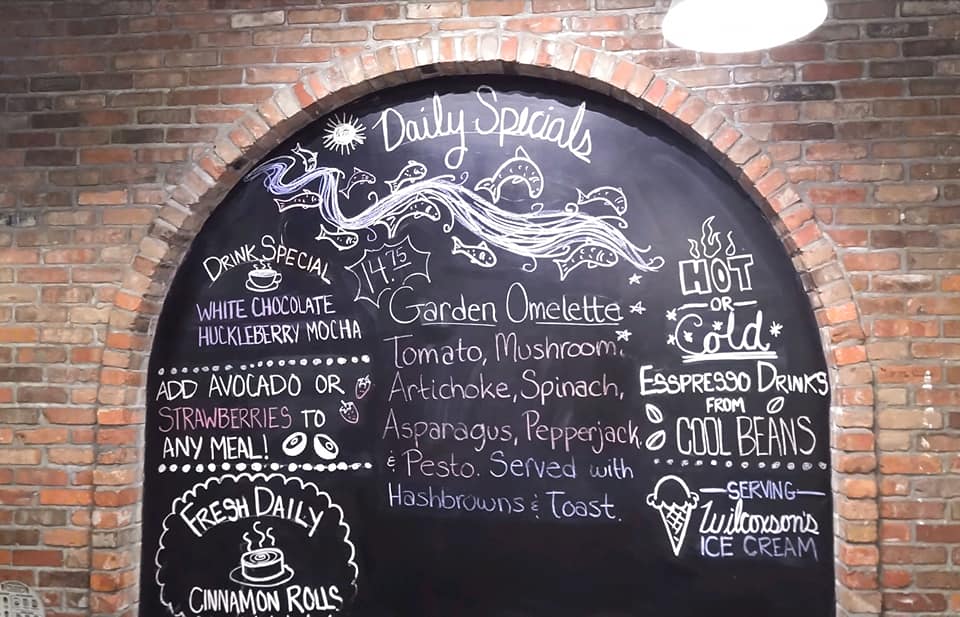 Daily Specials
DRINK SPECIAL
WHITE CHOCOLATE
HUCKLEBERRY MOCHA
ADD AVOCADO OR
STRAWBERRIES TO
ANY MEAL!
FRESH DAILY
CINNAMON ROLLS
14.75
Garden Omelette
Tomato, Mushroom,
Artichoke, Spinach,
Asparagus, Pepperjack,
& Pesto. Served with
Hashbrowns & Toast.
HOT
OR
Cold
ESSPRESSO DRINKS
FROM
COOL BEANS
SERVING
Wilcoxson's
ICE CREAM